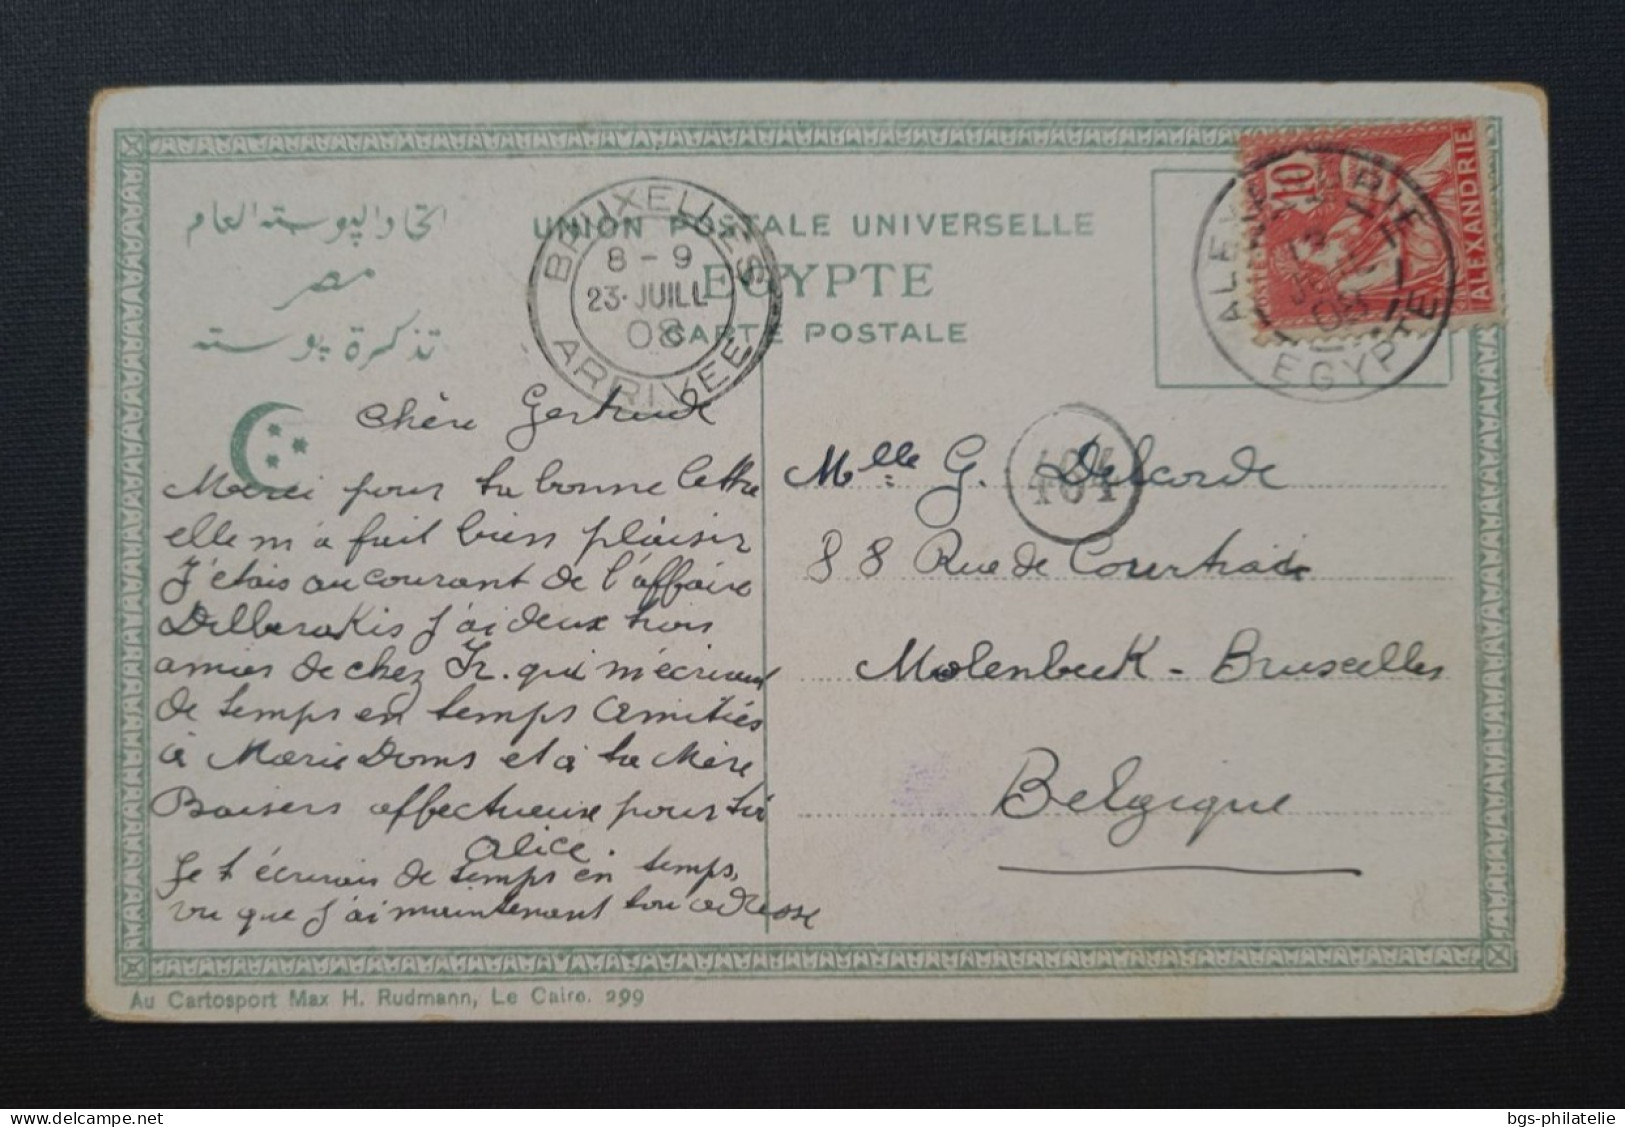 اتحاد البوسته العام
مصر
تذكرة بوسته
UNION POSTALE UNIVERSELLE
EGYPTE
CARTE POSTALE
BRUXELLES
8 - 9
23 · JUILL
08
ARRIVEE
10
POSTE
ALEXANDRIE
ALEXANDRIE
08
EGYPTE
404
Chère Gertrude
Merci pour ta bonne lettre
elle m'a fait bien plaisir
J'étais au courant de l'affaire
Delberakis j'ai deux trois
amies de chez Fr. qui m'écrivent
de temps en temps Amitiés
à Marie Doms et à ta Mère
Baisers affectueux pour toi
Alice.
Je t'écrirais de temps en temps,
vu que j'ai maintenant ton adresse
Mlle G. Delcorde
88 Rue de Courtrai
Molenbeek - Bruxelles
Belgique
Au Cartosport Max H. Rudmann, Le Caire. 299
bgs-philatelie